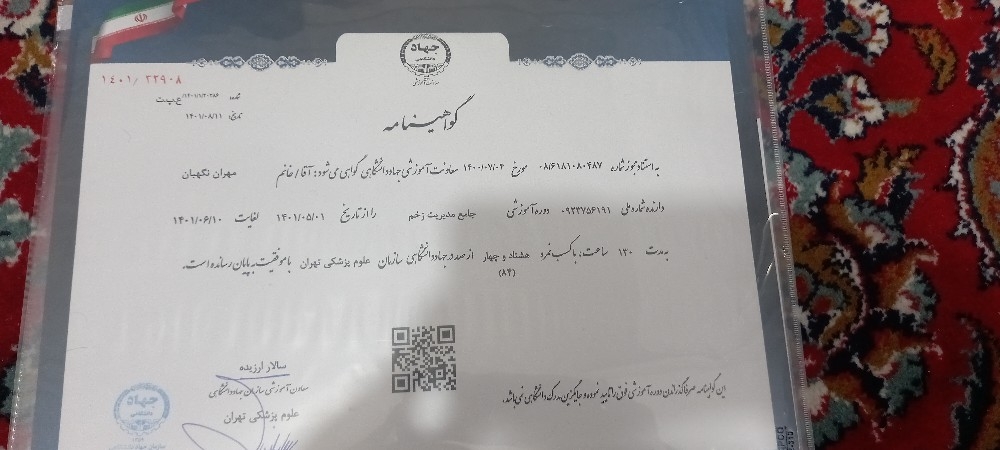 جهاد
دانشگاهی
معاونت آموزشی
۱۴۰۱/ ۲۲۹۰۸
شماره: ۱۴۰۱/۱/۲۰۲۸۶/ع پ ت
تاریخ: ۱۴۰۱/۰۸/۱۱
گواهینامه
به استناد مجوز شماره ۰۸۱۶۱۸۱۰۸۰۴۸۷ مورخ ۱۴۰۰/۰۷/۰۴ معاونت آموزشی جهاددانشگاهی گواهی می‌شود: آقا/خانم مهران نگهبان
دارنده شماره ملی ۰۹۲۳۷۵۶۱۹۱ دوره آموزشی جامع مدیریت زخم را از تاریخ ۱۴۰۱/۰۵/۰۱ لغایت ۱۴۰۱/۰۶/۱۰
به مدت ۱۳۰ ساعت، با کسب نمره هشتاد و چهار از صد در جهاددانشگاهی سازمان علوم پزشکی تهران با موفقیت به پایان رسانده است.
(۸۴)
سالار ارزیده
معاون آموزشی سازمان جهاددانشگاهی
علوم پزشکی تهران
این گواهینامه صرفا گذراندن دوره آموزشی فوق را تایید نموده و جایگزین مدرک دانشگاهی نمی باشد.
جهاد
دانشگاهی